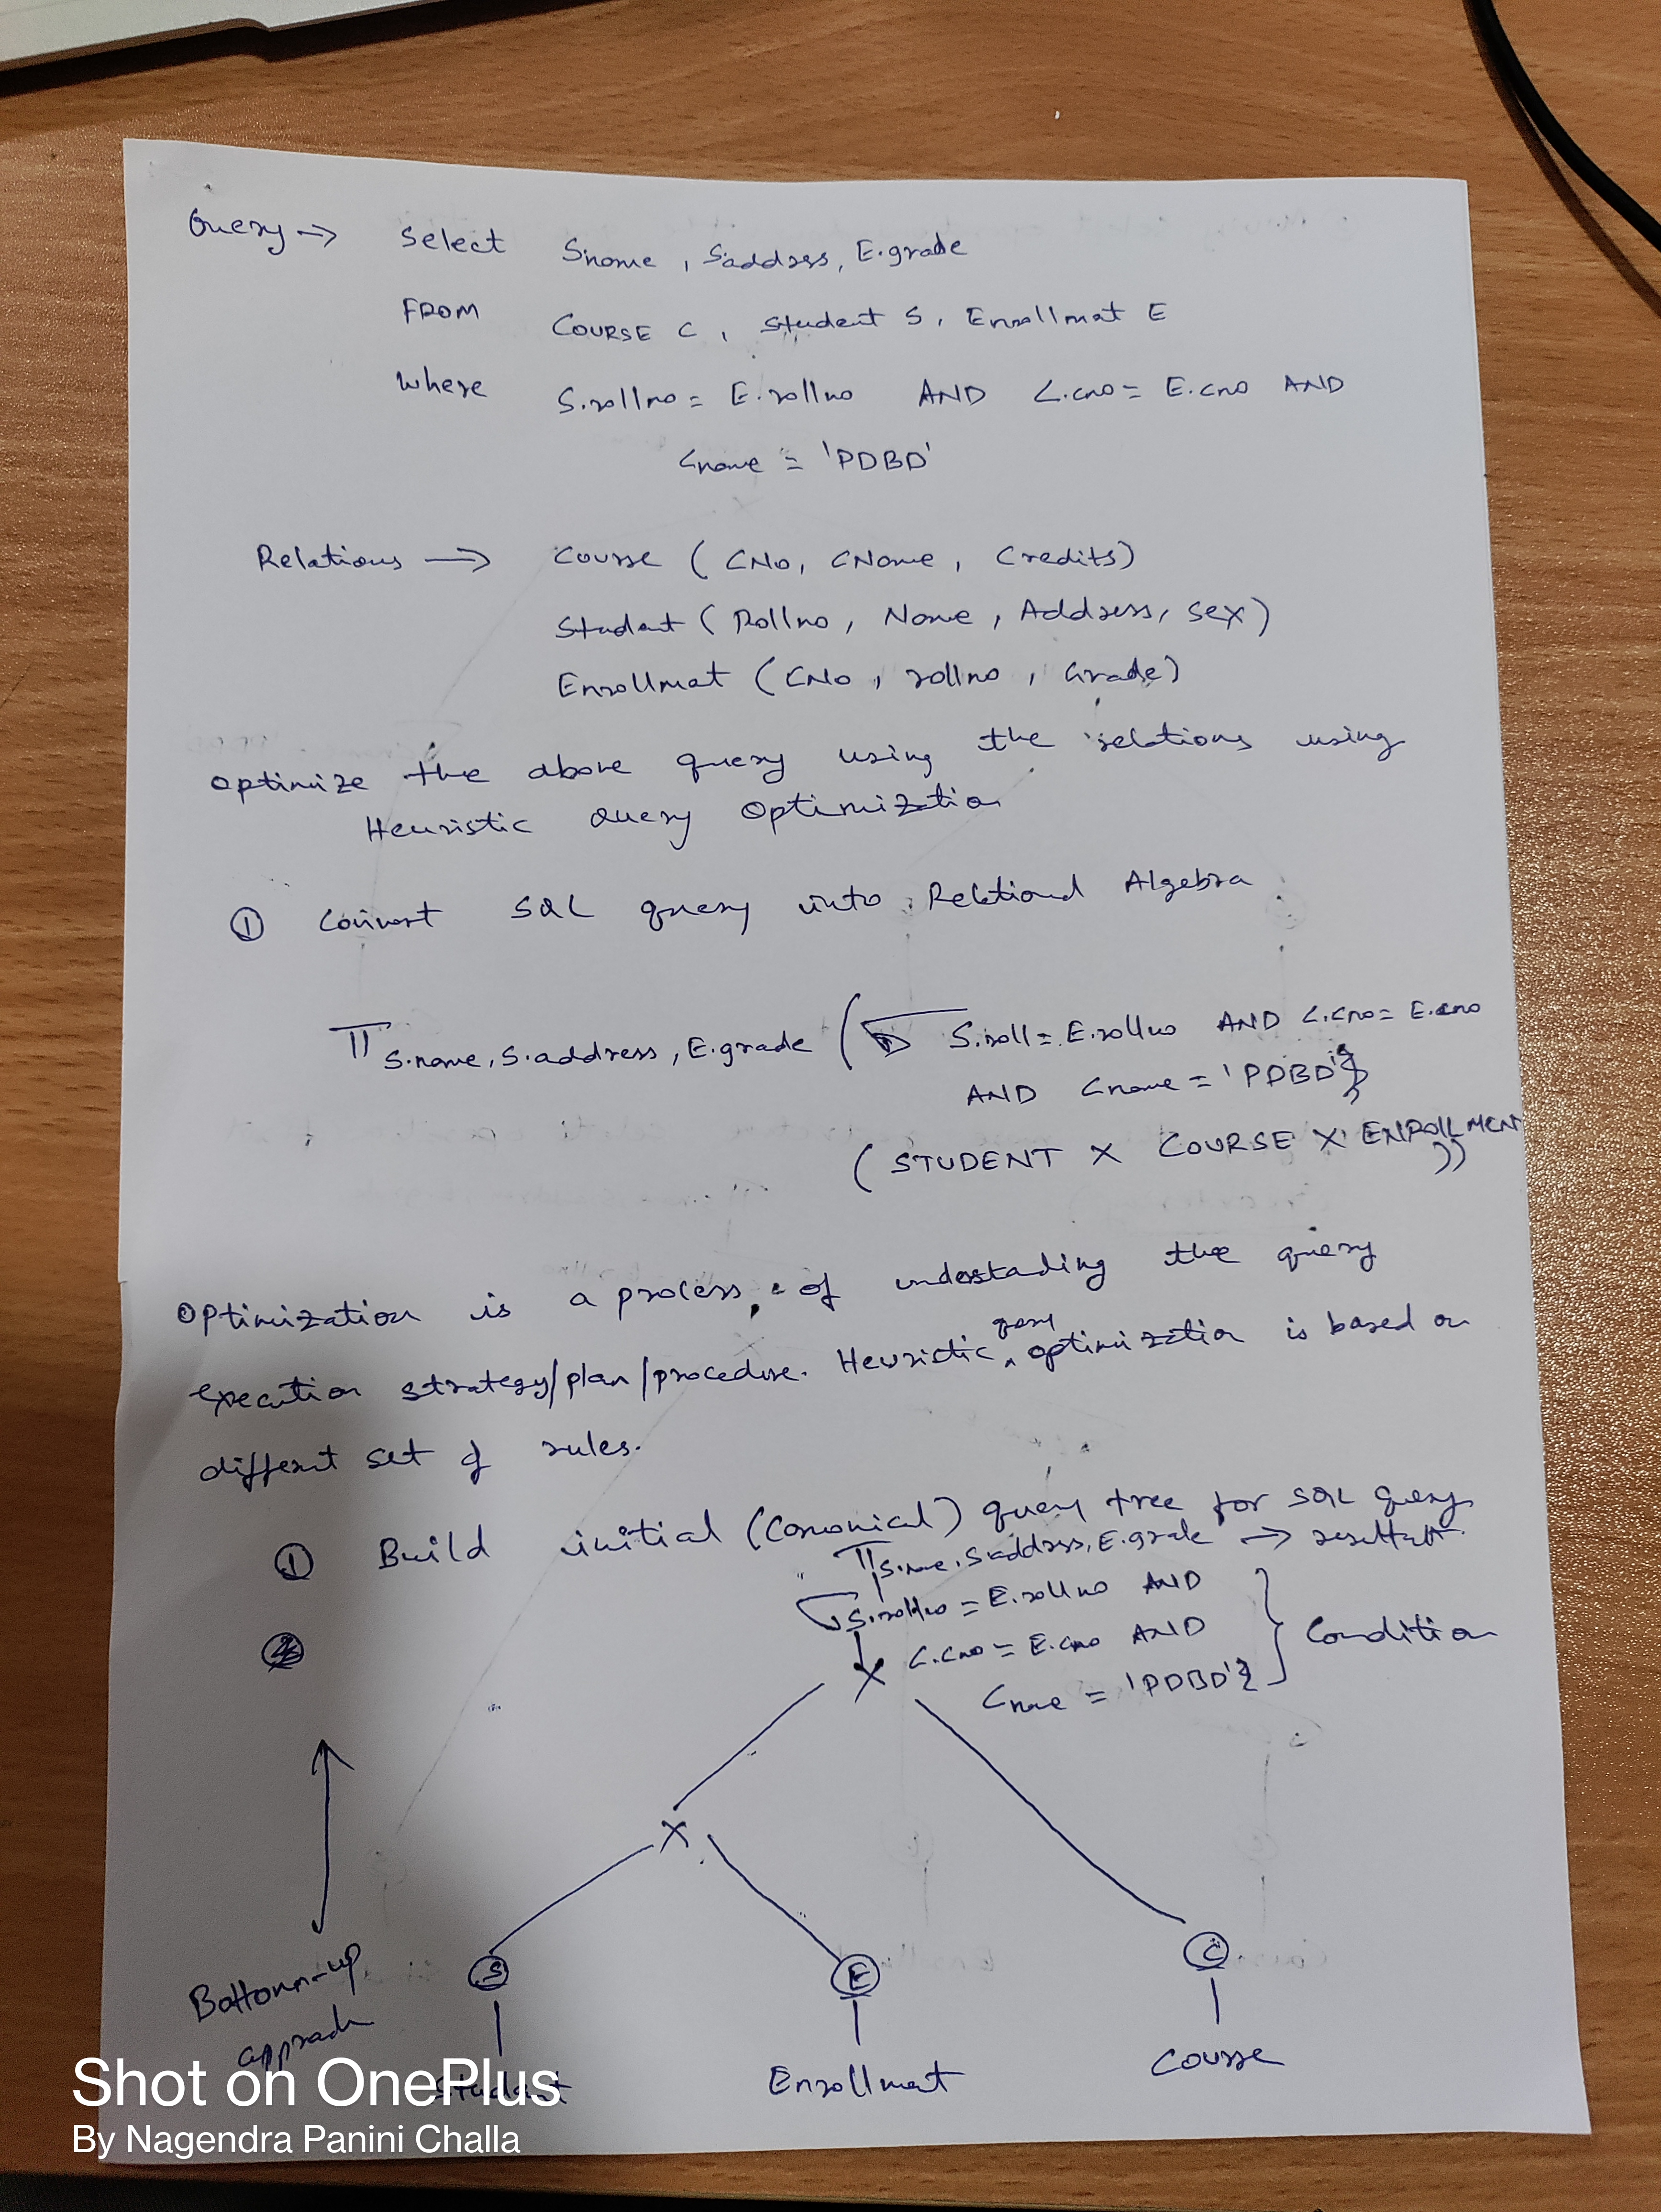 Query → Select S.name, S.address, E.grade
FROM COURSE C, Student S, Enrollmat E
Where S.rollno = E.rollno AND C.cno = E.cno AND
Cname = 'PDBD'
Relations → Course (CNo, CName, Credits)
Student (Rollno, Name, Address, Sex)
Enrollmat (CNo, rollno, Grade)
Optimize the above query using the relations using
Heuristic Query Optimization
① Convert SQL query into Relational Algebra
π S.name, S.address, E.grade (σ S.roll = E.rollno AND C.cno = E.cno
AND Cname = 'PDBD'}
(STUDENT X COURSE X ENROLLMENT))
Optimization is a process of undestading the query
execution strategy/plan/procedure. Heuristic query optimization is based on
different set of rules.
① Build initial (Canonical) query tree for SQL query
π S.name, S.address, E.grade → result
σ S.rollno = E.rollno AND
C.cno = E.cno AND
Cname = 'PDBD'}
} Condition
X
X
S
E
C
Bottom-up
approach
Student
Enrollmat
Course
Shot on OnePlus
By Nagendra Panini Challa